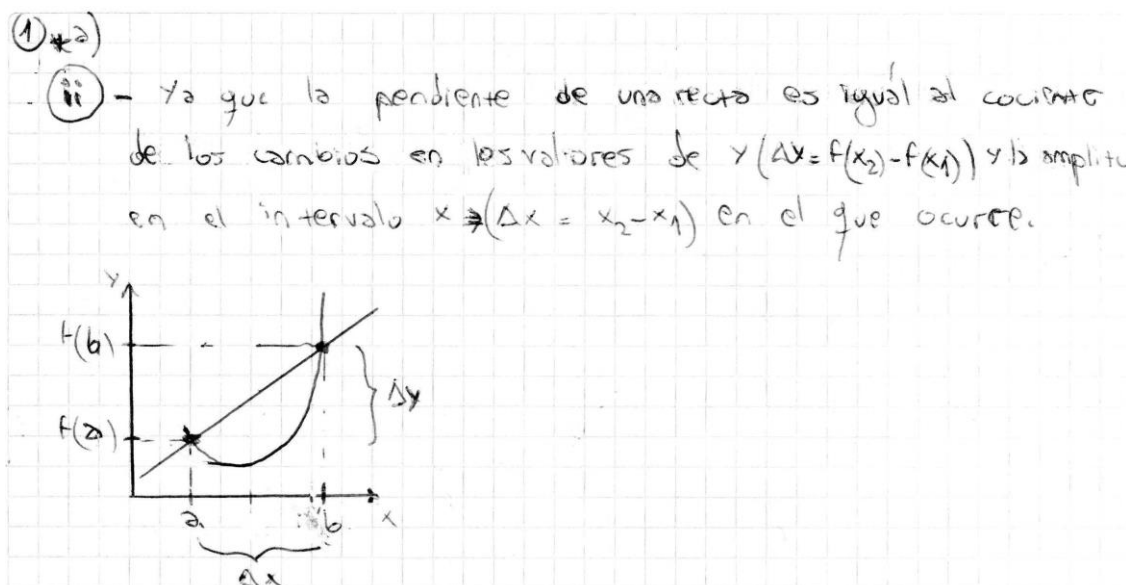 ① * a)
ii - Ya que la pendiente de una recta es igual al cociente
de los cambios en los valores de y (Δy = f(x₂) - f(x₁)) y la amplitu
en el intervalo x (Δx = x₂ - x₁) en el que ocurre.
y
f(b)
Δy
f(a)
a b x
Δx